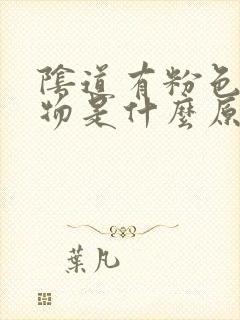 陰道有粉色
物是什麼原
葉凡